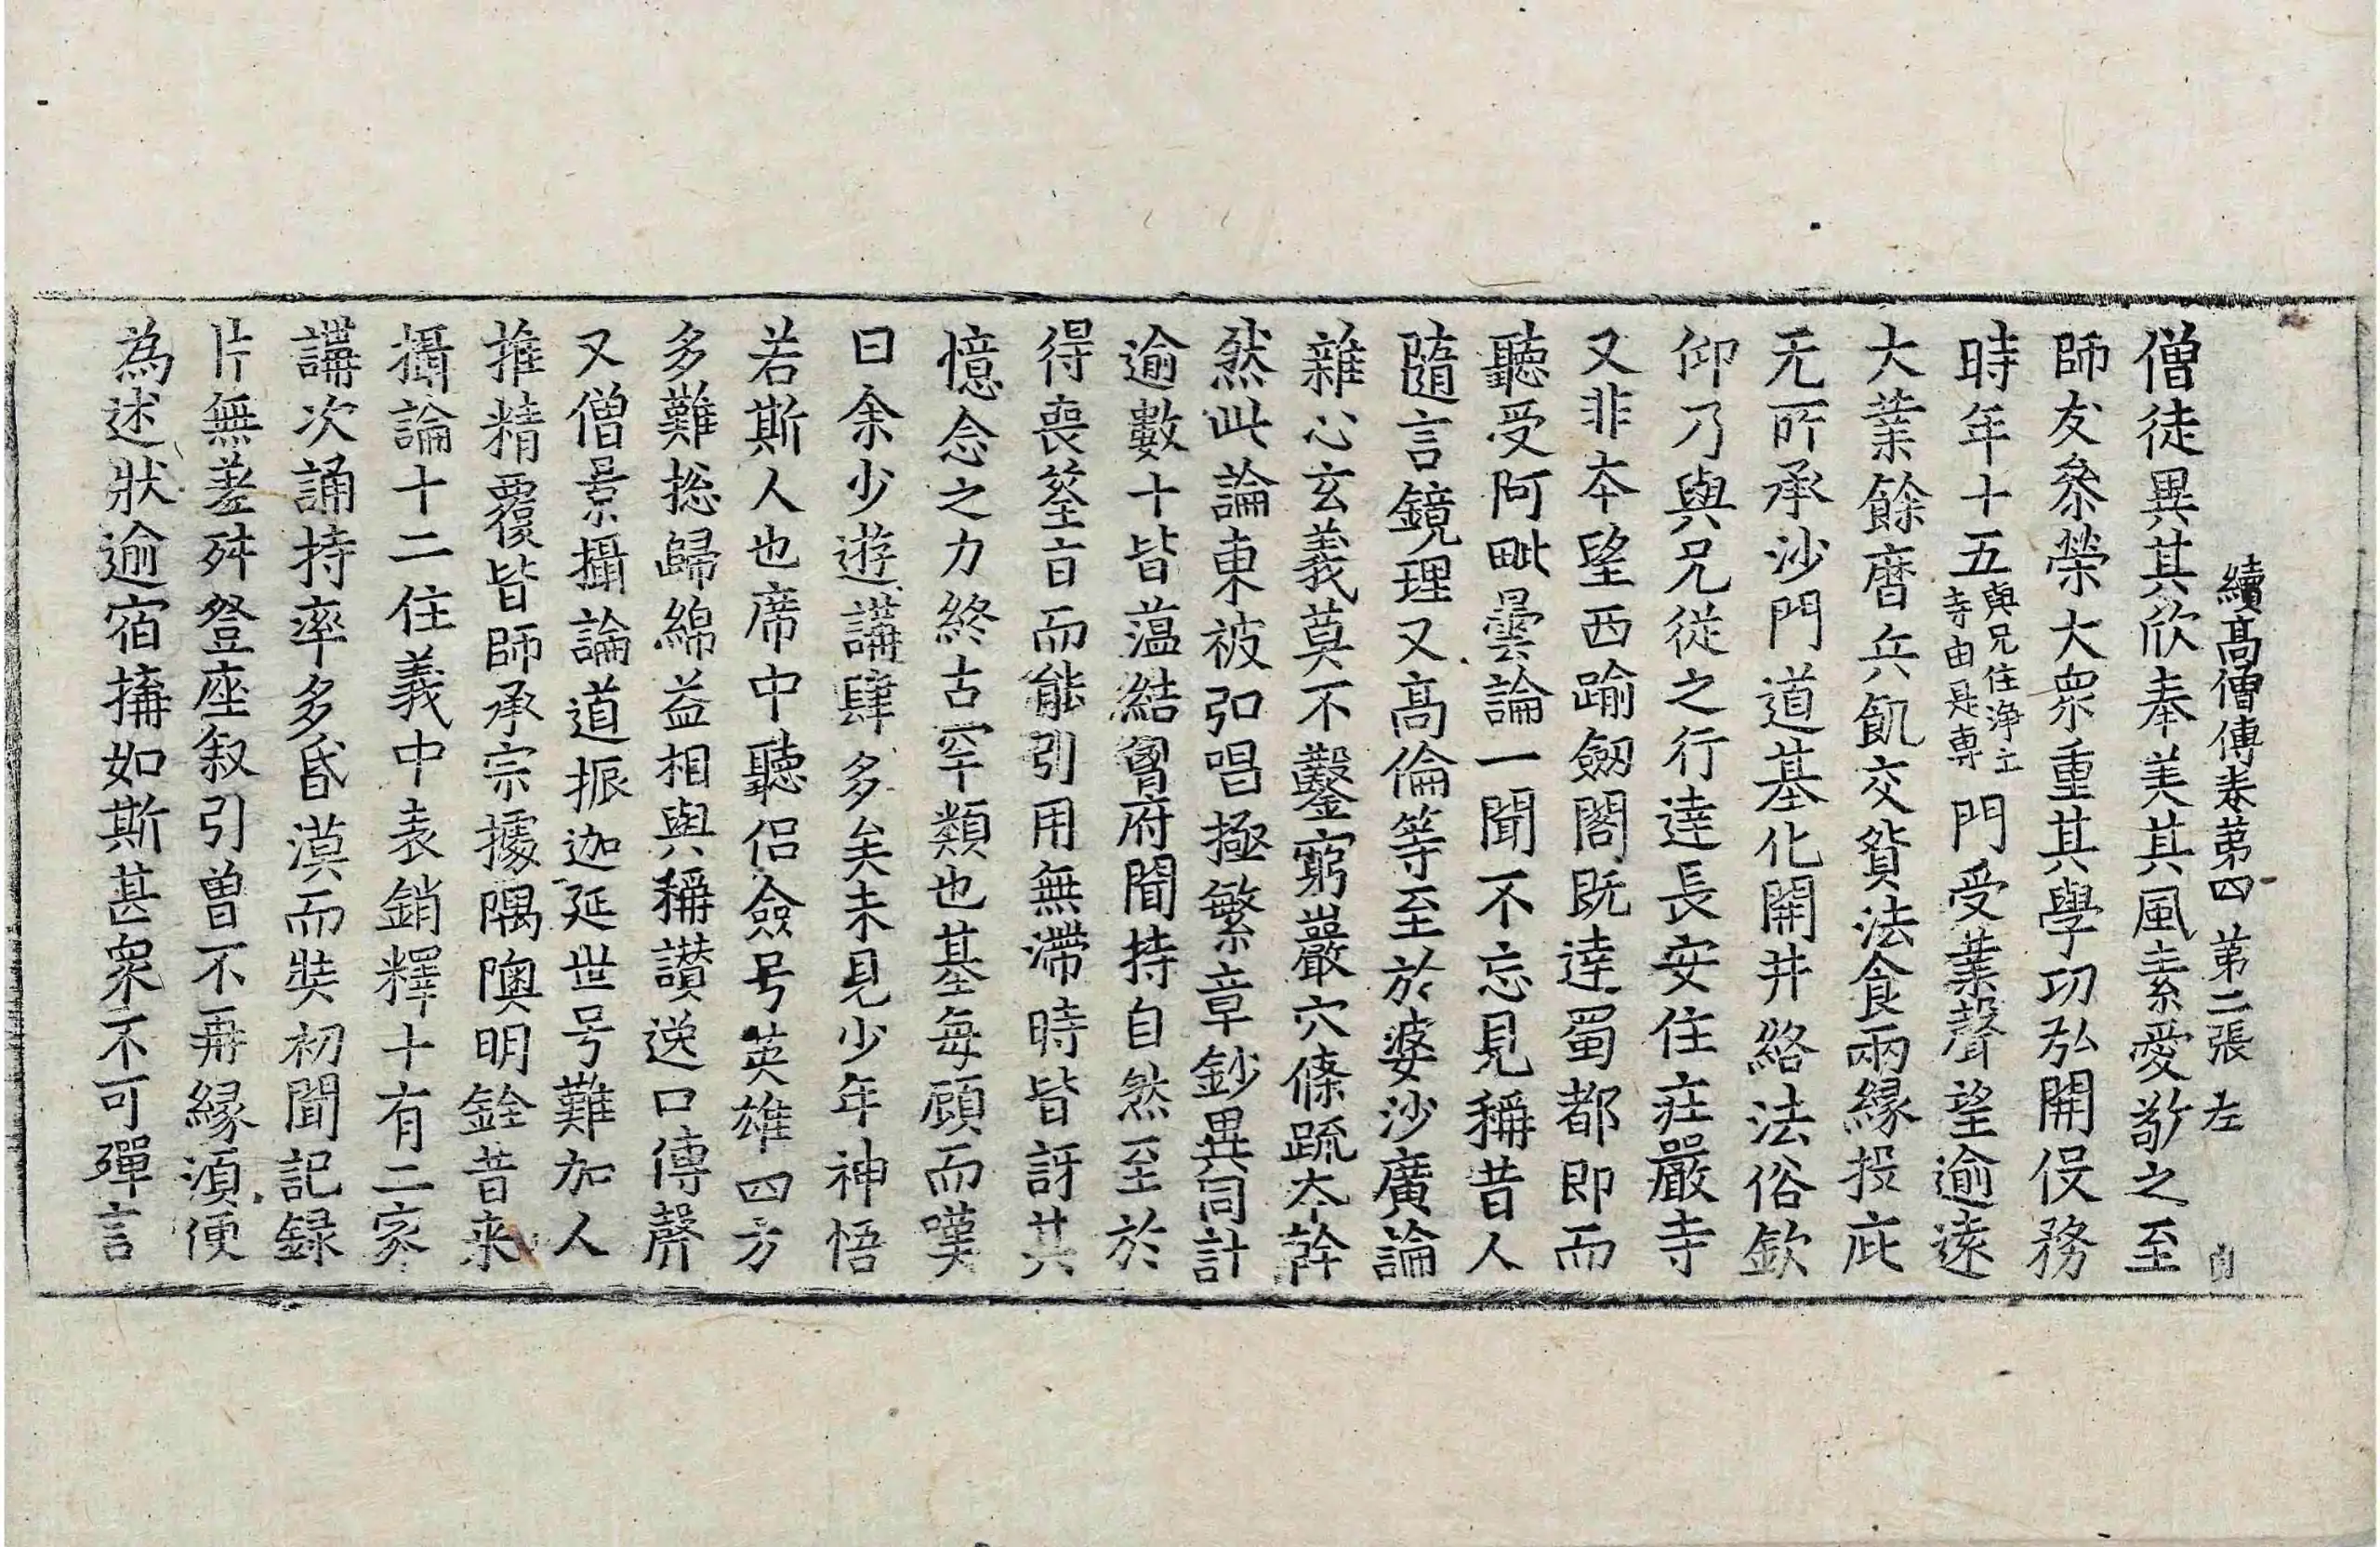 續高僧傳卷第四 第二張 左
僧徒異其欣奉美其風素愛敬之至
師友參榮大衆重其學功弘開役務
時年十五與兄住淨土寺由是專門受業聲望逾遠
大業餘曆兵飢交貿法食兩緣投庇
无所承沙門道基化開井絡法俗欽
仰乃與兄從之行達長安住莊嚴寺
又非本望西踰劒閣既達蜀都即而
聽受阿毗曇論一聞不忘見稱昔人
隨言鏡理又高倫等至於婆沙廣論
雜心玄義莫不鑿窮巖穴條疏本幹
然此論東被弘唱極繁章鈔異同計
逾數十皆薀結胷府聞持自然至於
得喪筌旨而能引用無滯時皆訝其
憶念之力終古罕類也基每顧而嘆
曰余少遊講肆多矣未見少年神悟
若斯人也席中聽侶僉号英雄四方
多難捴歸綿益相與稱讃逸口傳聲
又僧景攝論道振迦延世号難加人
推精覆皆師承宗據隅隩明銓昔来
攝論十二住義中表銷釋十有二家
講次誦持率多昏漠而奘初聞記録
片無差舛登座叙引曽不再縁湏便
為述狀逾宿搆如斯甚衆不可殫言